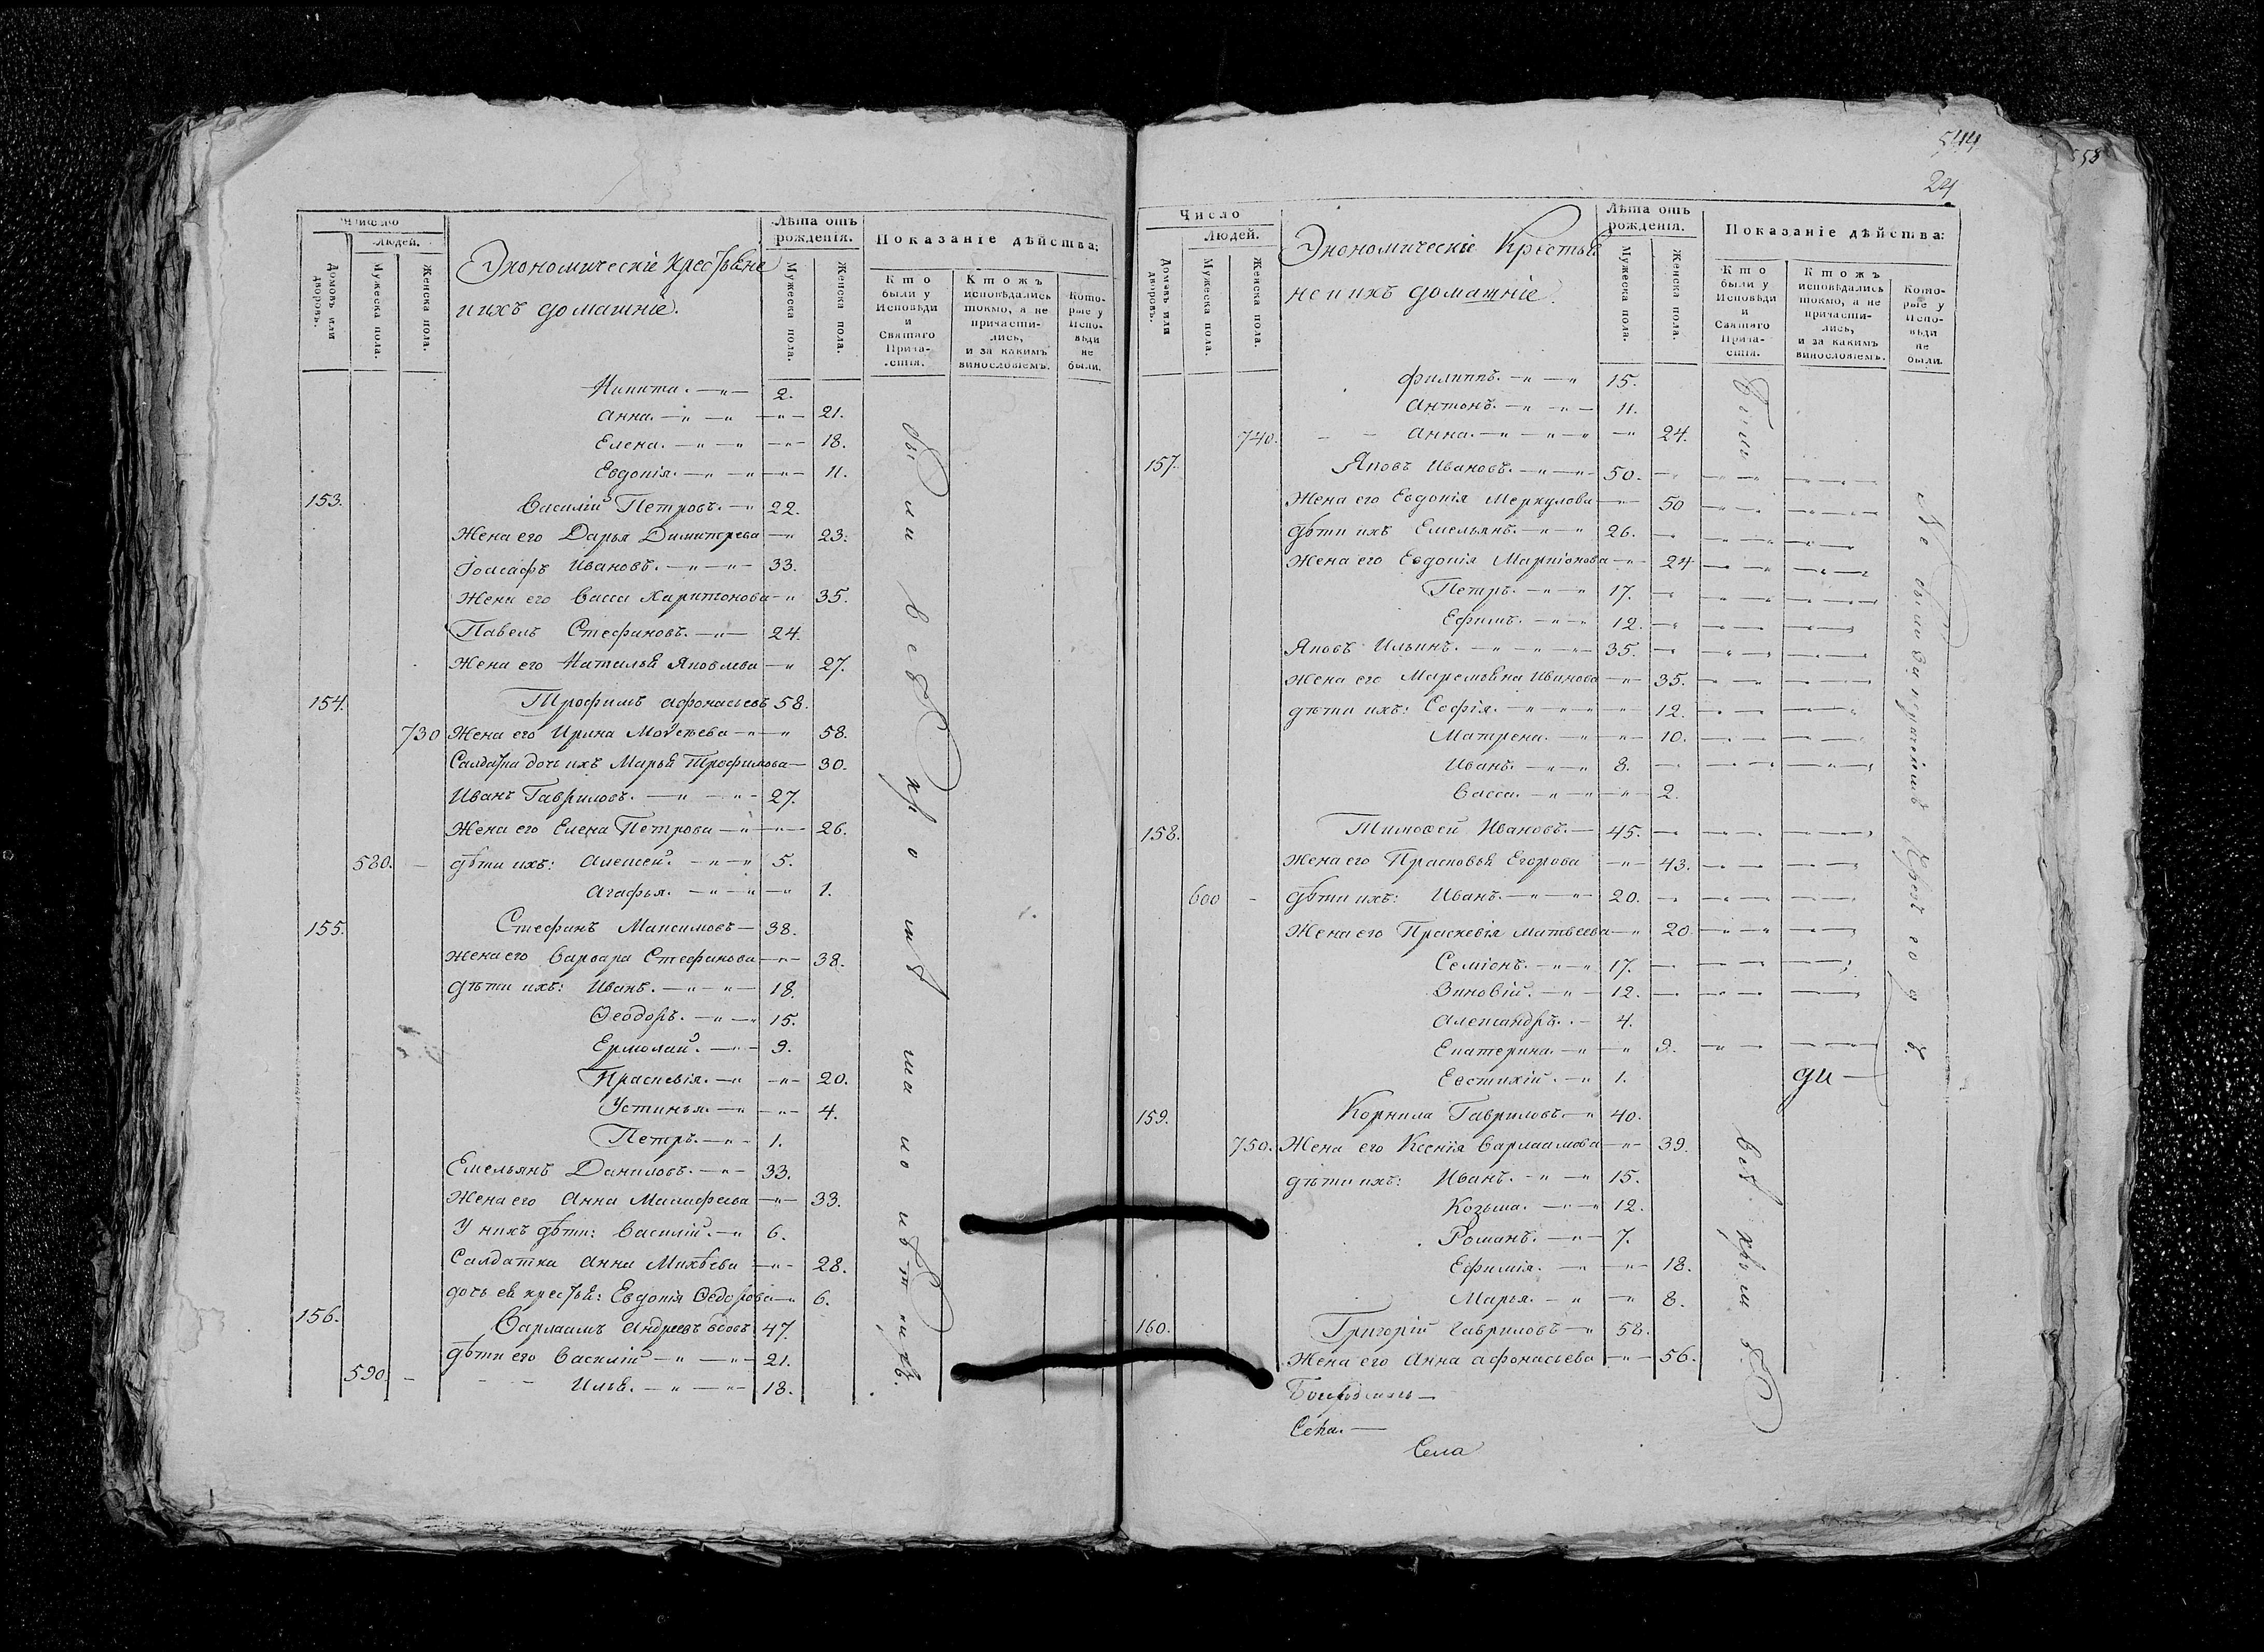 Число
Людей.
Домовъ или дворовъ.
Мужеска пола.
Женска пола.
Экономическіе крестьяне
и ихъ домашніе.
Лѣта отъ рожденія.
Мужеска пола.
Женска пола.
Показаніе дѣйства:
Кто были у Исповѣди и Святаго Прича-стія.
Ктожъ исповѣдались токмо, а не причасти-лись, и за какимъ винословіемъ.
Кото-рые у Испо-вѣди не были.
Никита. 2.
Анна. 21.
Елена. 18.
Евдокія. 11.
153. Василій Петровъ. 22.
Жена его Дарья Димитрева 23.
Іоасафъ Ивановъ. 33.
Жена его Васса Харитонова 35.
Павелъ Стефановъ. 24.
Жена его Наталья Яковлева 27.
154. Трофимъ Афонасьевъ 58.
730 Жена его Ирина Моѵсеева 58.
Салдатка дочь ихъ Марья Трофимова 30.
Иванъ Гавриловъ. 27.
Жена его Елена Петрова 26.
580. дѣти ихъ: Алексей. 5.
Агафья. 1.
155. Стефанъ Максимовъ 38.
Жена его Варвара Стефанова 38.
дѣти ихъ: Иванъ. 18.
Ѳеодоръ. 15.
Ермолай. 9.
Праскевія. 20.
Устинья. 4.
Петръ. 1.
Емельянъ Даниловъ. 33.
Жена его Анна 33.
У нихъ дѣти: Василій. 6.
Салдатка Анна Михѣева 28.
дочь ея крестья: Евдокія Ѳедорова 6.
156. Варлаамъ Андреевъ вдовъ 47.
дѣти его Василій 21.
590. Илья. 18.
были всѣ кромѣ малолѣтнихъ.
544
558
24
Число
Людей.
Домовъ или дворовъ.
Мужеска пола.
Женска пола.
Экономическіе Крестья
не и ихъ домашніе.
Лѣта отъ рожденія.
Мужеска пола.
Женска пола.
Показаніе дѣйства:
Кто были у Исповѣди и Святаго Прича-стія.
Ктожъ исповѣдались токмо, а не причасти-лись, и за какимъ винословіемъ.
Кото-рые у Испо-вѣди не были.
Филиппъ. 15.
Антонъ. 11.
740. Анна. 24.
157. Яковъ Ивановъ. 50.
Жена его Евдокія Меркулова 50
дѣти ихъ Емельянъ. 26.
Жена его Евдокія 24
Петръ. 17.
Ефимъ. 12.
Яковъ Ильинъ. 35.
Жена его Маремьяна Иванова 35.
дѣти ихъ: Софія. 12.
Матрена. 10.
Иванъ. 8.
Васса. 2.
158. Тимофей Ивановъ. 45.
Жена его Прасковья Егорова 43.
600 дѣти ихъ: Иванъ. 20.
Жена его Праскевія Матвѣева 20
Семіонъ. 17.
Зиновій. 12.
Александръ. 4.
Екатерина. 9.
Евстихій. 1.
159. Корнила Гавриловъ 40.
750. Жена его Ксенія Варлаамова 39.
дѣти ихъ: Иванъ. 15.
Козьма. 12.
Романъ. 7.
Ефимія. 18.
Марья. 8.
160. Григорій Гавриловъ 58.
Жена его Анна Афонасьева 56.
Были
всѣ кромѣ
Села